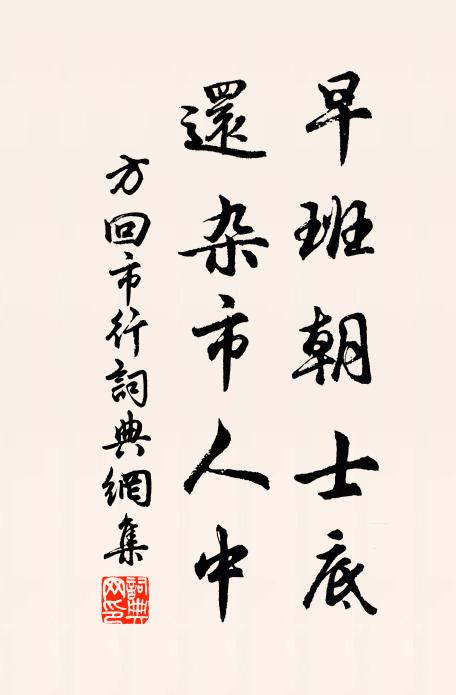 早班朝士底
還杂市人中
方回市行詞典網集
詞典網印